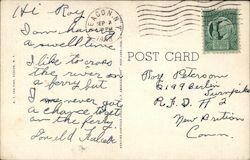 Hi Roy
I am having
a swell time
I like to cross
the river on
a ferry but
I may never got
a chance to get
on the ferry
Donald
BEACON N.Y.
SEP 2
POST CARD
Roy Peterson
2199 Berlin
Turnpike
R.F.D. # 2
New Britain
Conn.